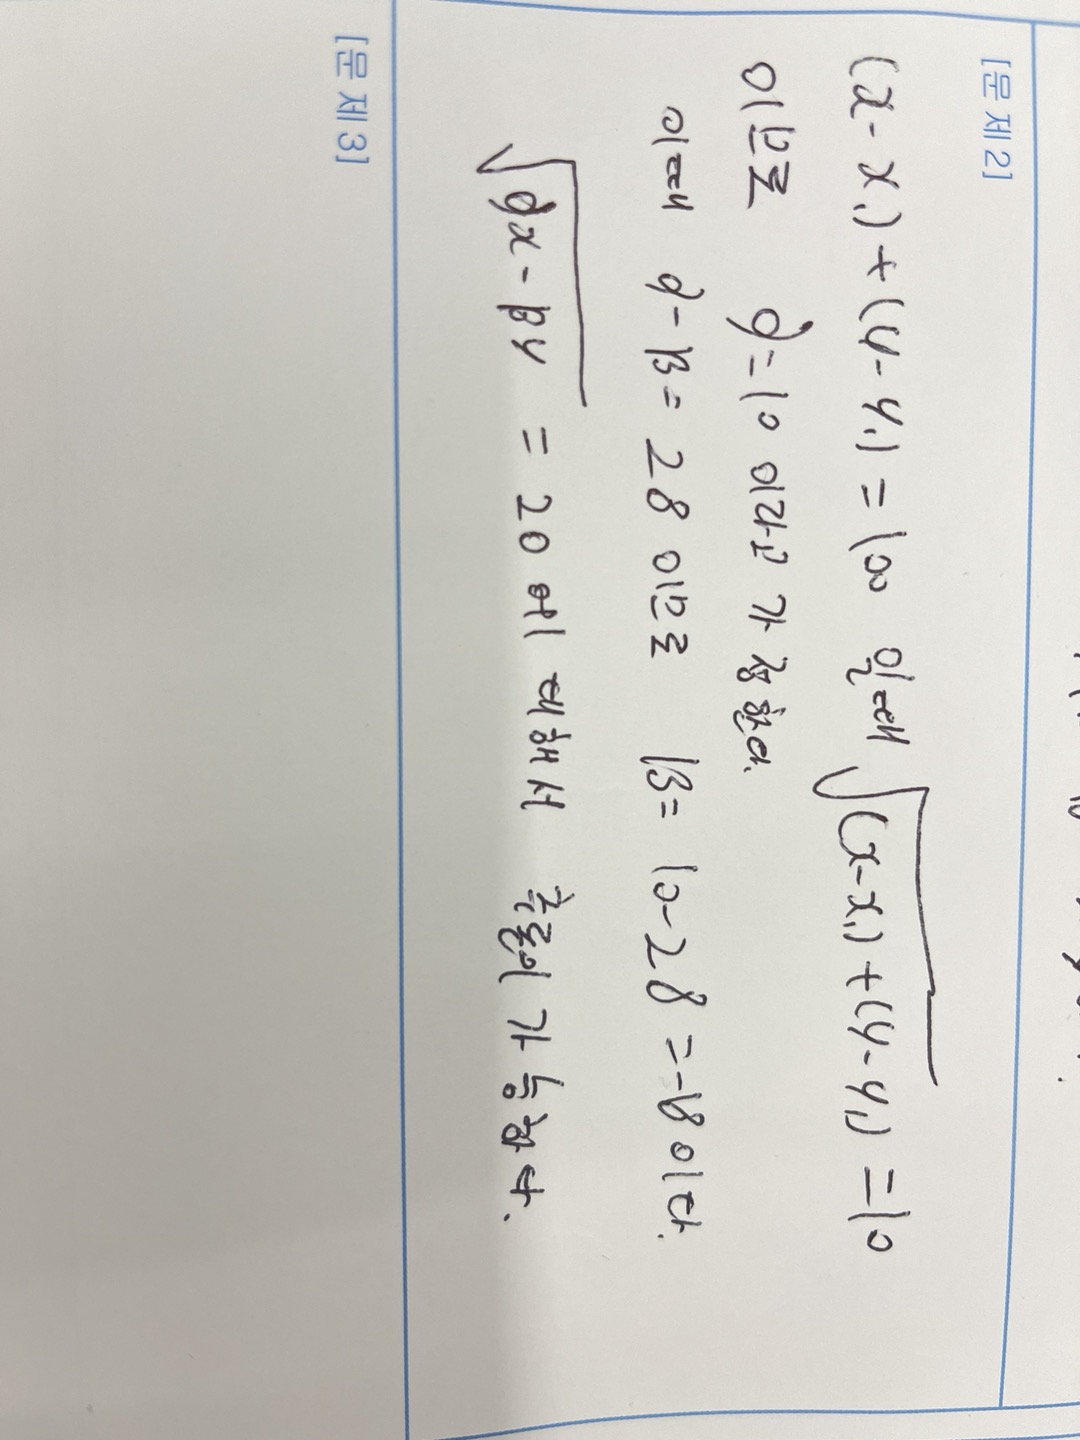 [문제2]
(x-x₁)+(y-y₁)=100 일때 √(x-x₁)+(y-y₁) =10
이므로 α=10 이라고 가정한다.
이때 α-β= 28 이므로 β= 10-28 =-18이다.
√αx-βy = 20 에 대해서 추론이 가능하다.
[문제3]